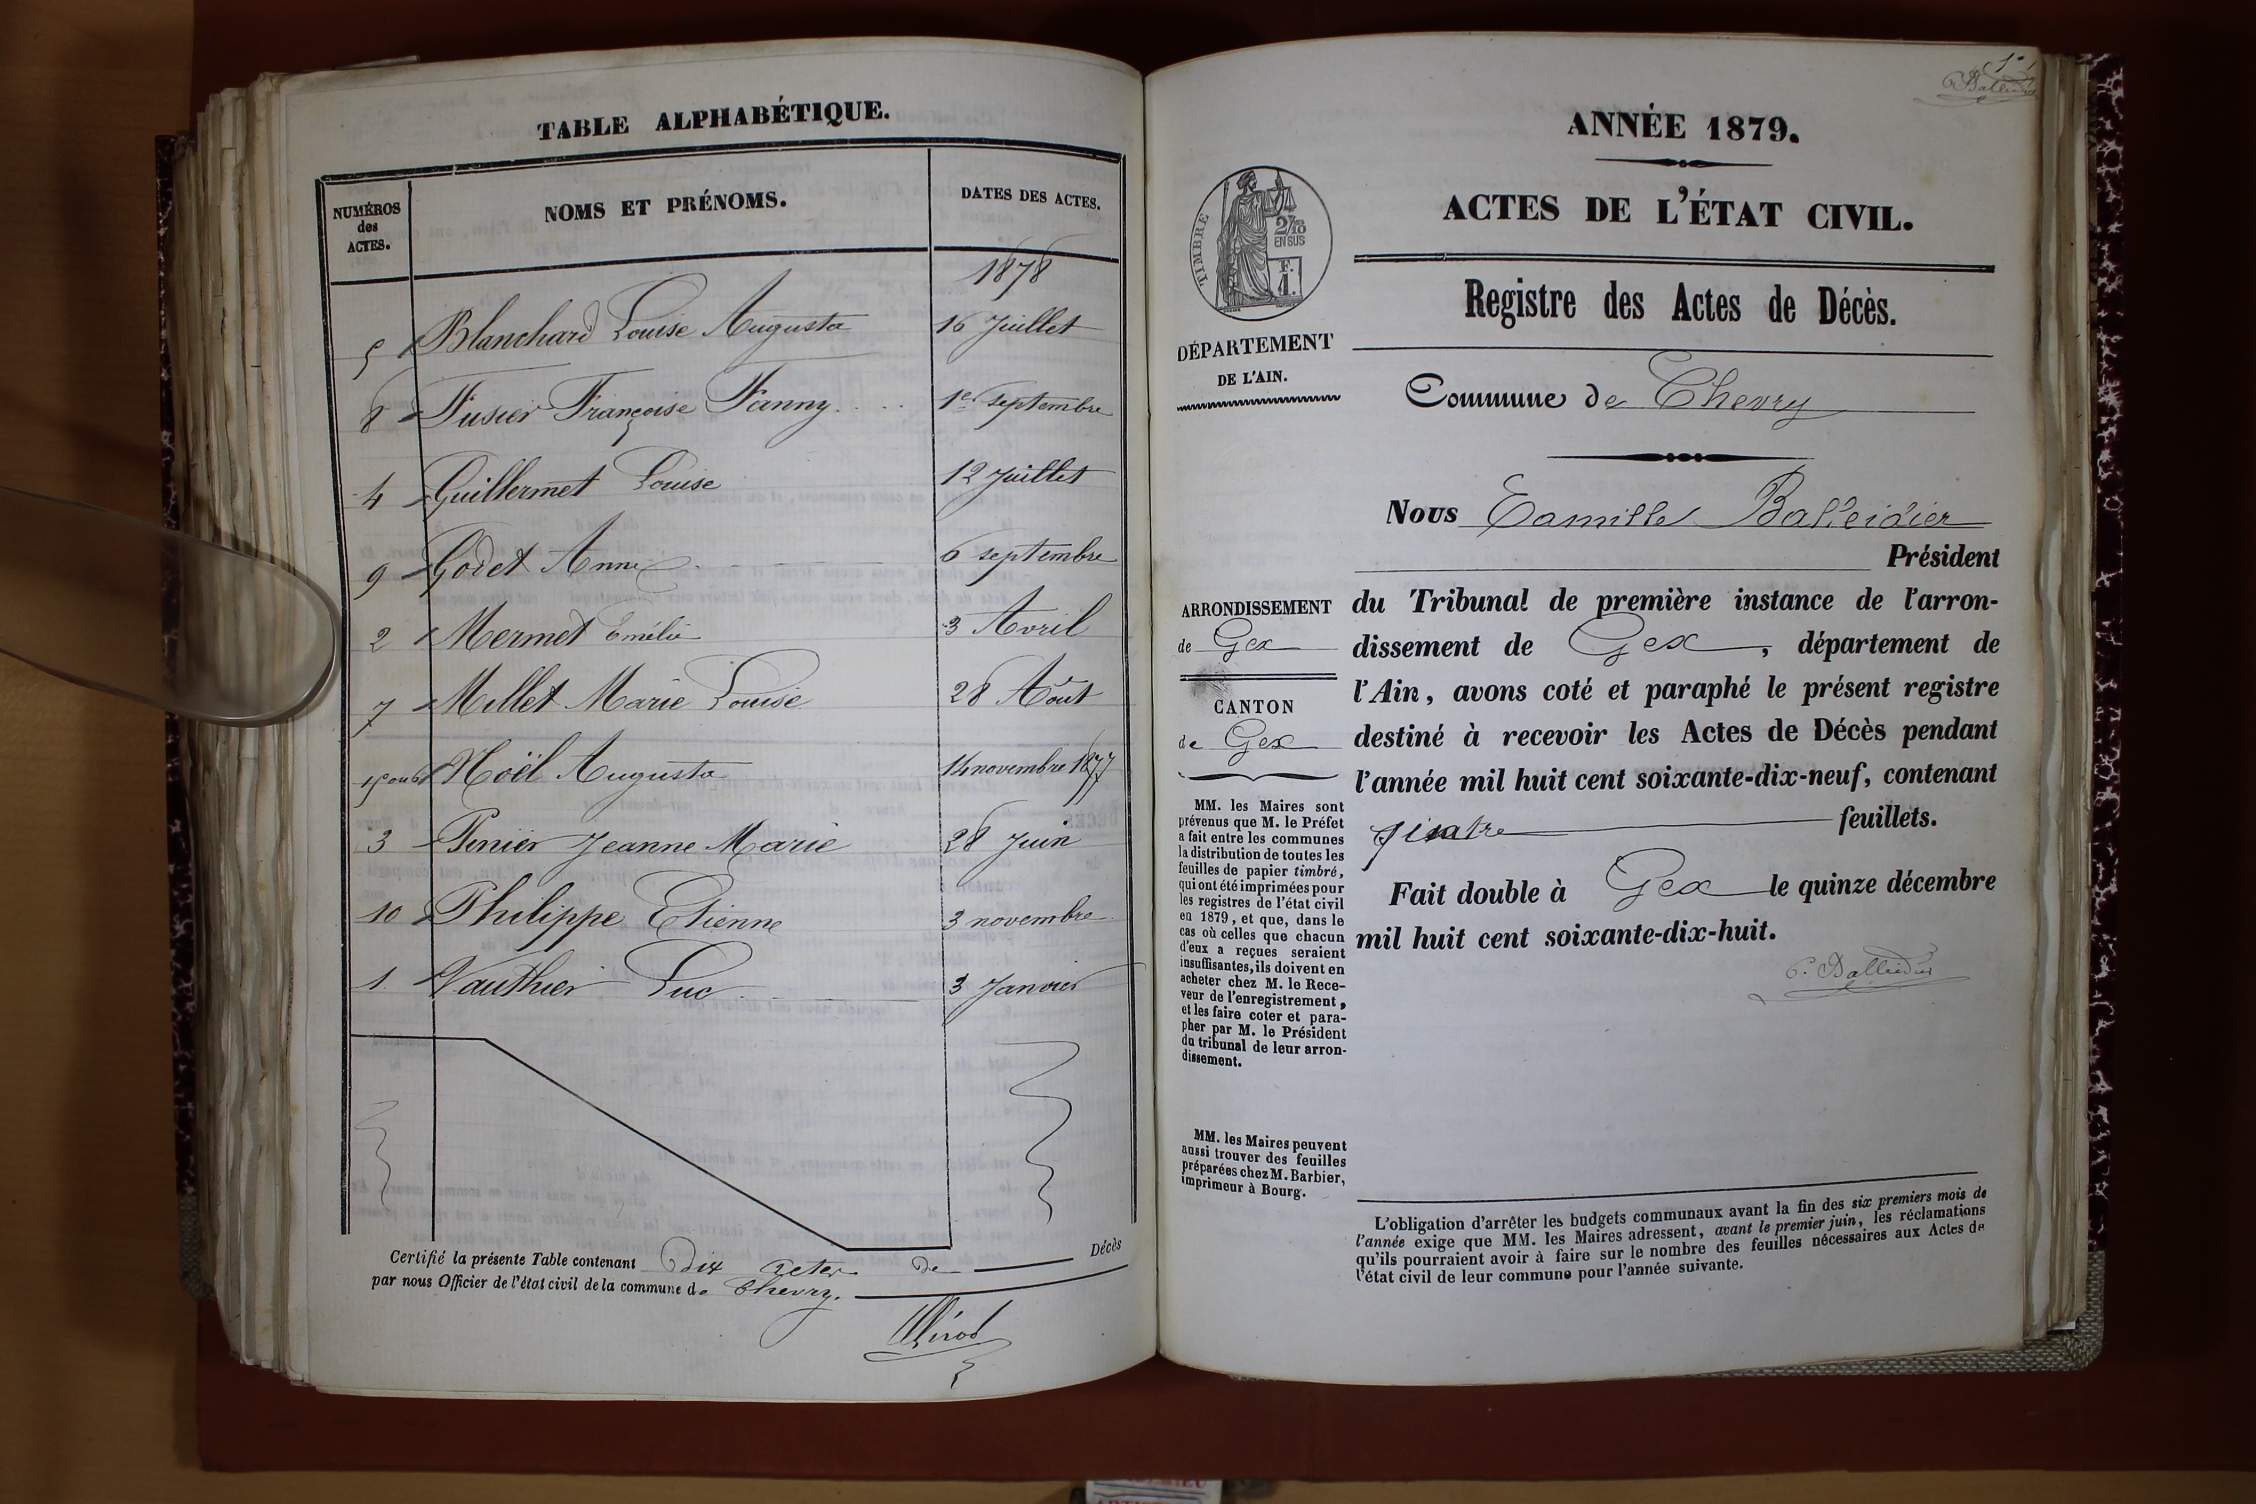 TABLE ALPHABÉTIQUE.
NUMÉROS
des
ACTES.
NOMS ET PRÉNOMS.
DATES DES ACTES.
1878
5 Blanchard Louise Augusta 16 Juillet
8 Fusier Françoise Fanny 1er septembre
4 Guillermet Louise 12 Juillet
9 Godet Anne 6 septembre
2 Mermet Emélie 3 Avril
7 Millet Marie Louise 28 Août
Noël Augusta 14 novembre 1877
3 Penier Jeanne Marie 28 Juin
10 Philippe Etienne 3 novembre
1. Vauthier Luc 3 Janvier
Certifié la présente Table contenant Dix actes de Décès
par nous Officier de l'état civil de la commune de Chevry.
1er
C. Balleidier
ANNÉE 1879.
ACTES DE L'ÉTAT CIVIL.
TIMBRE
2/10
EN SUS
F.
1.
DÉPARTEMENT
DE L'AIN.
Registre des Actes de Décès.
Commune de Chevry
Nous Camille Balleidier
Président
du Tribunal de première instance de l'arron-
dissement de Gex, département de
l'Ain, avons coté et paraphé le présent registre
destiné à recevoir les Actes de Décès pendant
l'année mil huit cent soixante-dix-neuf, contenant
feuillets.
Fait double à Gex le quinze décembre
mil huit cent soixante-dix-huit.
C. Balleidier
ARRONDISSEMENT
de Gex
CANTON
de Gex
MM. les Maires sont
prévenus que M. le Préfet
a fait entre les communes
la distribution de toutes les
feuilles de papier timbré,
qui ont été imprimées pour
les registres de l'état civil
en 1879, et que, dans le
cas où celles que chacun
d'eux a reçues seraient
insuffisantes, ils doivent en
acheter chez M. le Rece-
veur de l'enregistrement,
et les faire coter et para-
pher par M. le Président
du tribunal de leur arron-
dissement.
MM. les Maires peuvent
aussi trouver des feuilles
préparées chez M. Barbier,
imprimeur à Bourg.
L'obligation d'arrêter les budgets communaux avant la fin des six premiers mois de
l'année exige que MM. les Maires adressent, avant le premier juin, les réclamations
qu'ils pourraient avoir à faire sur le nombre des feuilles nécessaires aux Actes de
l'état civil de leur commune pour l'année suivante.